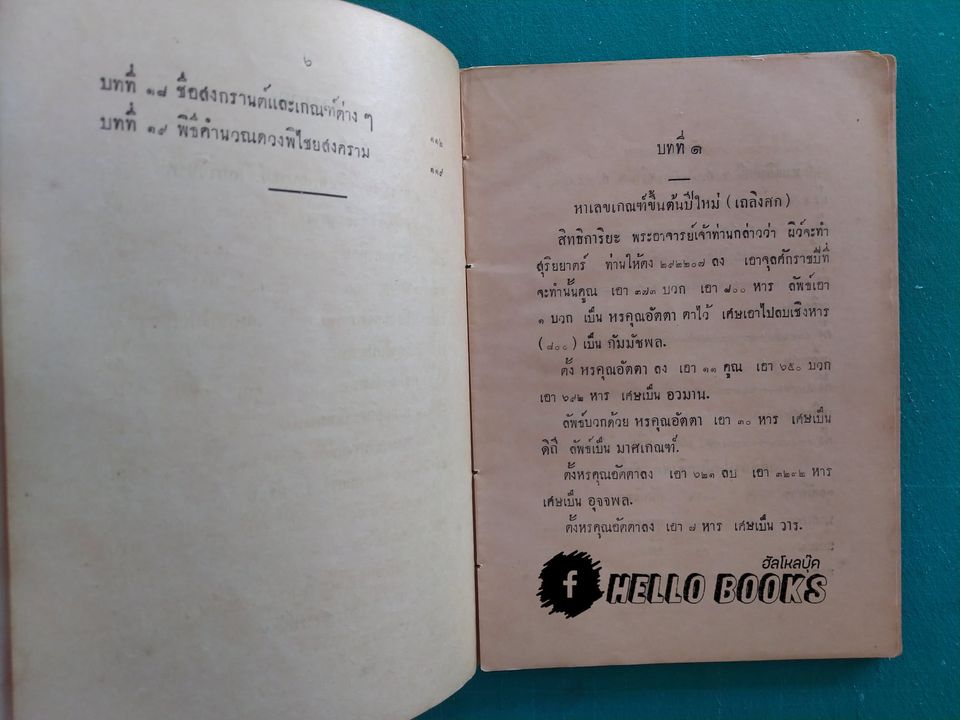 ๖
บทที่ ๑๘ ชื่อสงกรานต์และเกณฑ์ต่าง ๆ ๑๑๒
บทที่ ๑๙ พิธีคำนวณดวงพิไชยสงคราม ๑๑๙
บทที่ ๑
หาเลขเกณฑ์ขึ้นต้นปีใหม่ (เถลิงศก)
สิทธิการิยะ พระอาจารย์เจ้าท่านกล่าวว่า ผิว์จะทำ
สุริยยาตร์ ท่านให้ตง ๒๙๒๒๐๗ ลง เอาจุลศักราชปีที่
จะทำนั้นคูณ เอา ๓๗๓ บวก เอา ๘๐๐ หาร ลัพธ์เอา
๑ บวก เป็น หรคุณอัตตา ตาไว้ เศษเอาไปลบเชิงหาร
(๘๐๐) เป็น กัมมัชพล.
ตั้ง หรคุณอัตตา ลง เอา ๑๑ คูณ เอา ๖๕๐ บวก
เอา ๖๙๒ หาร เศษเป็น อวมาน.
ลัพธ์บวกด้วย หรคุณอัตตา เอา ๓๐ หาร เศษเป็น
ดิถี ลัพธ์เป็น มาศเกณฑ์.
ตั้งหรคุณอัตตาลง เอา ๖๒๑ ลบ เอา ๓๒๙๒ หาร
เศษเป็น อุจจพล.
ตั้งหรคุณอัตตาลง เอา ๗ หาร เศษเป็น วาร.
ฮัลโหลบุ๊ค
f HELLO BOOKS